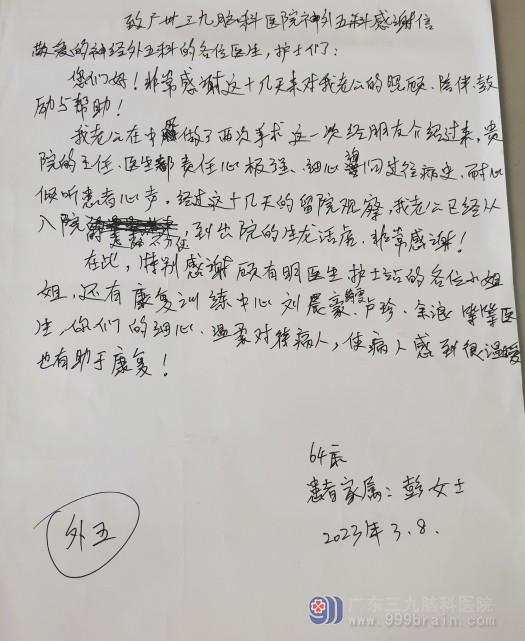 致广州三九脑科医院神外五科感谢信
敬爱的神经外五科的各位医生，护士们：
您们好！非常感谢这十几天来对我老公的照顾、陪伴、鼓
励与帮助！
我老公在中 做了两次手术 这一次经朋友介绍过来，贵
院的主任、医生都责任心极强、细心 问过往病史，耐心
倾听患者心声。经过这十几天的留院观察，我老公已经从
入院 ，到出院的生龙活虎。非常感谢！
在此，特别感谢顾有明医生，护士站的各位小姐
姐，还有康复训练中心刘晨豪、卢珍、余浪等等医
生，你们的细心、温柔对待病人，使病人感到很温暖
也有助于康复！
64床
患者家属：彭女士
2023年3.8.
外五
广东三九脑科医院
www.999brain.com